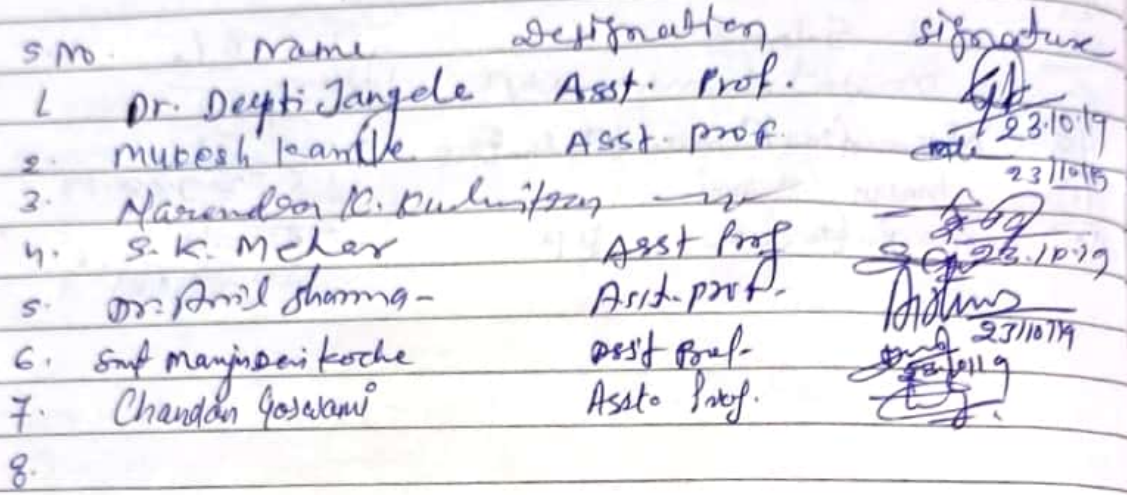 S.No. Name Designation Signature
1 Dr. Deepti Jangele Asst. Prof. 23.10.19
2. Mukesh Kamble Asst. prof. 23/10/19
3. Narendra K.
4. S. K. Meher Asst Prof 23.10.19
5. Dr. Anil Sharma - Asst. prof. 23/10/19
6. Smt Manju Devi Koche Asst Prof.
7. Chandan Goswami Asst. Prof.
8.